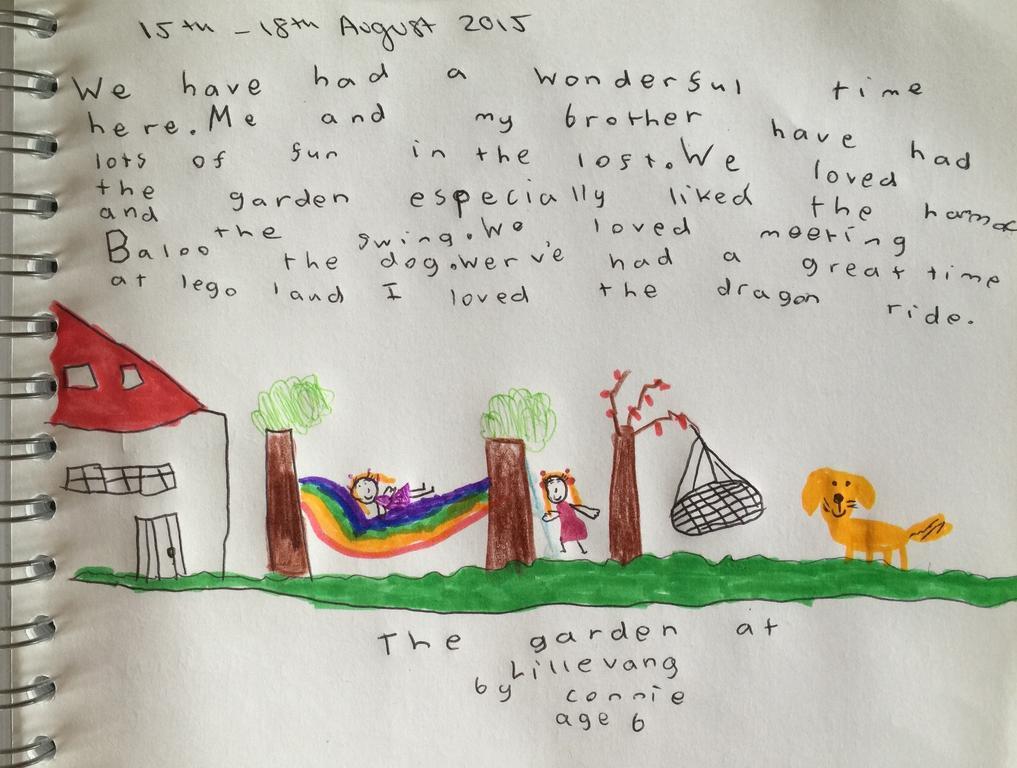 15th - 18th August 2015
We have had a wonderful time
here. Me and my brother have had
lots of fun in the lost. We loved
the garden especially liked the hamoc
and the swing. We loved meering
Baloo the dog. werv'e had a great time
at lego land I loved the dragon ride.
The garden at
Lillevang
by connie
age 6